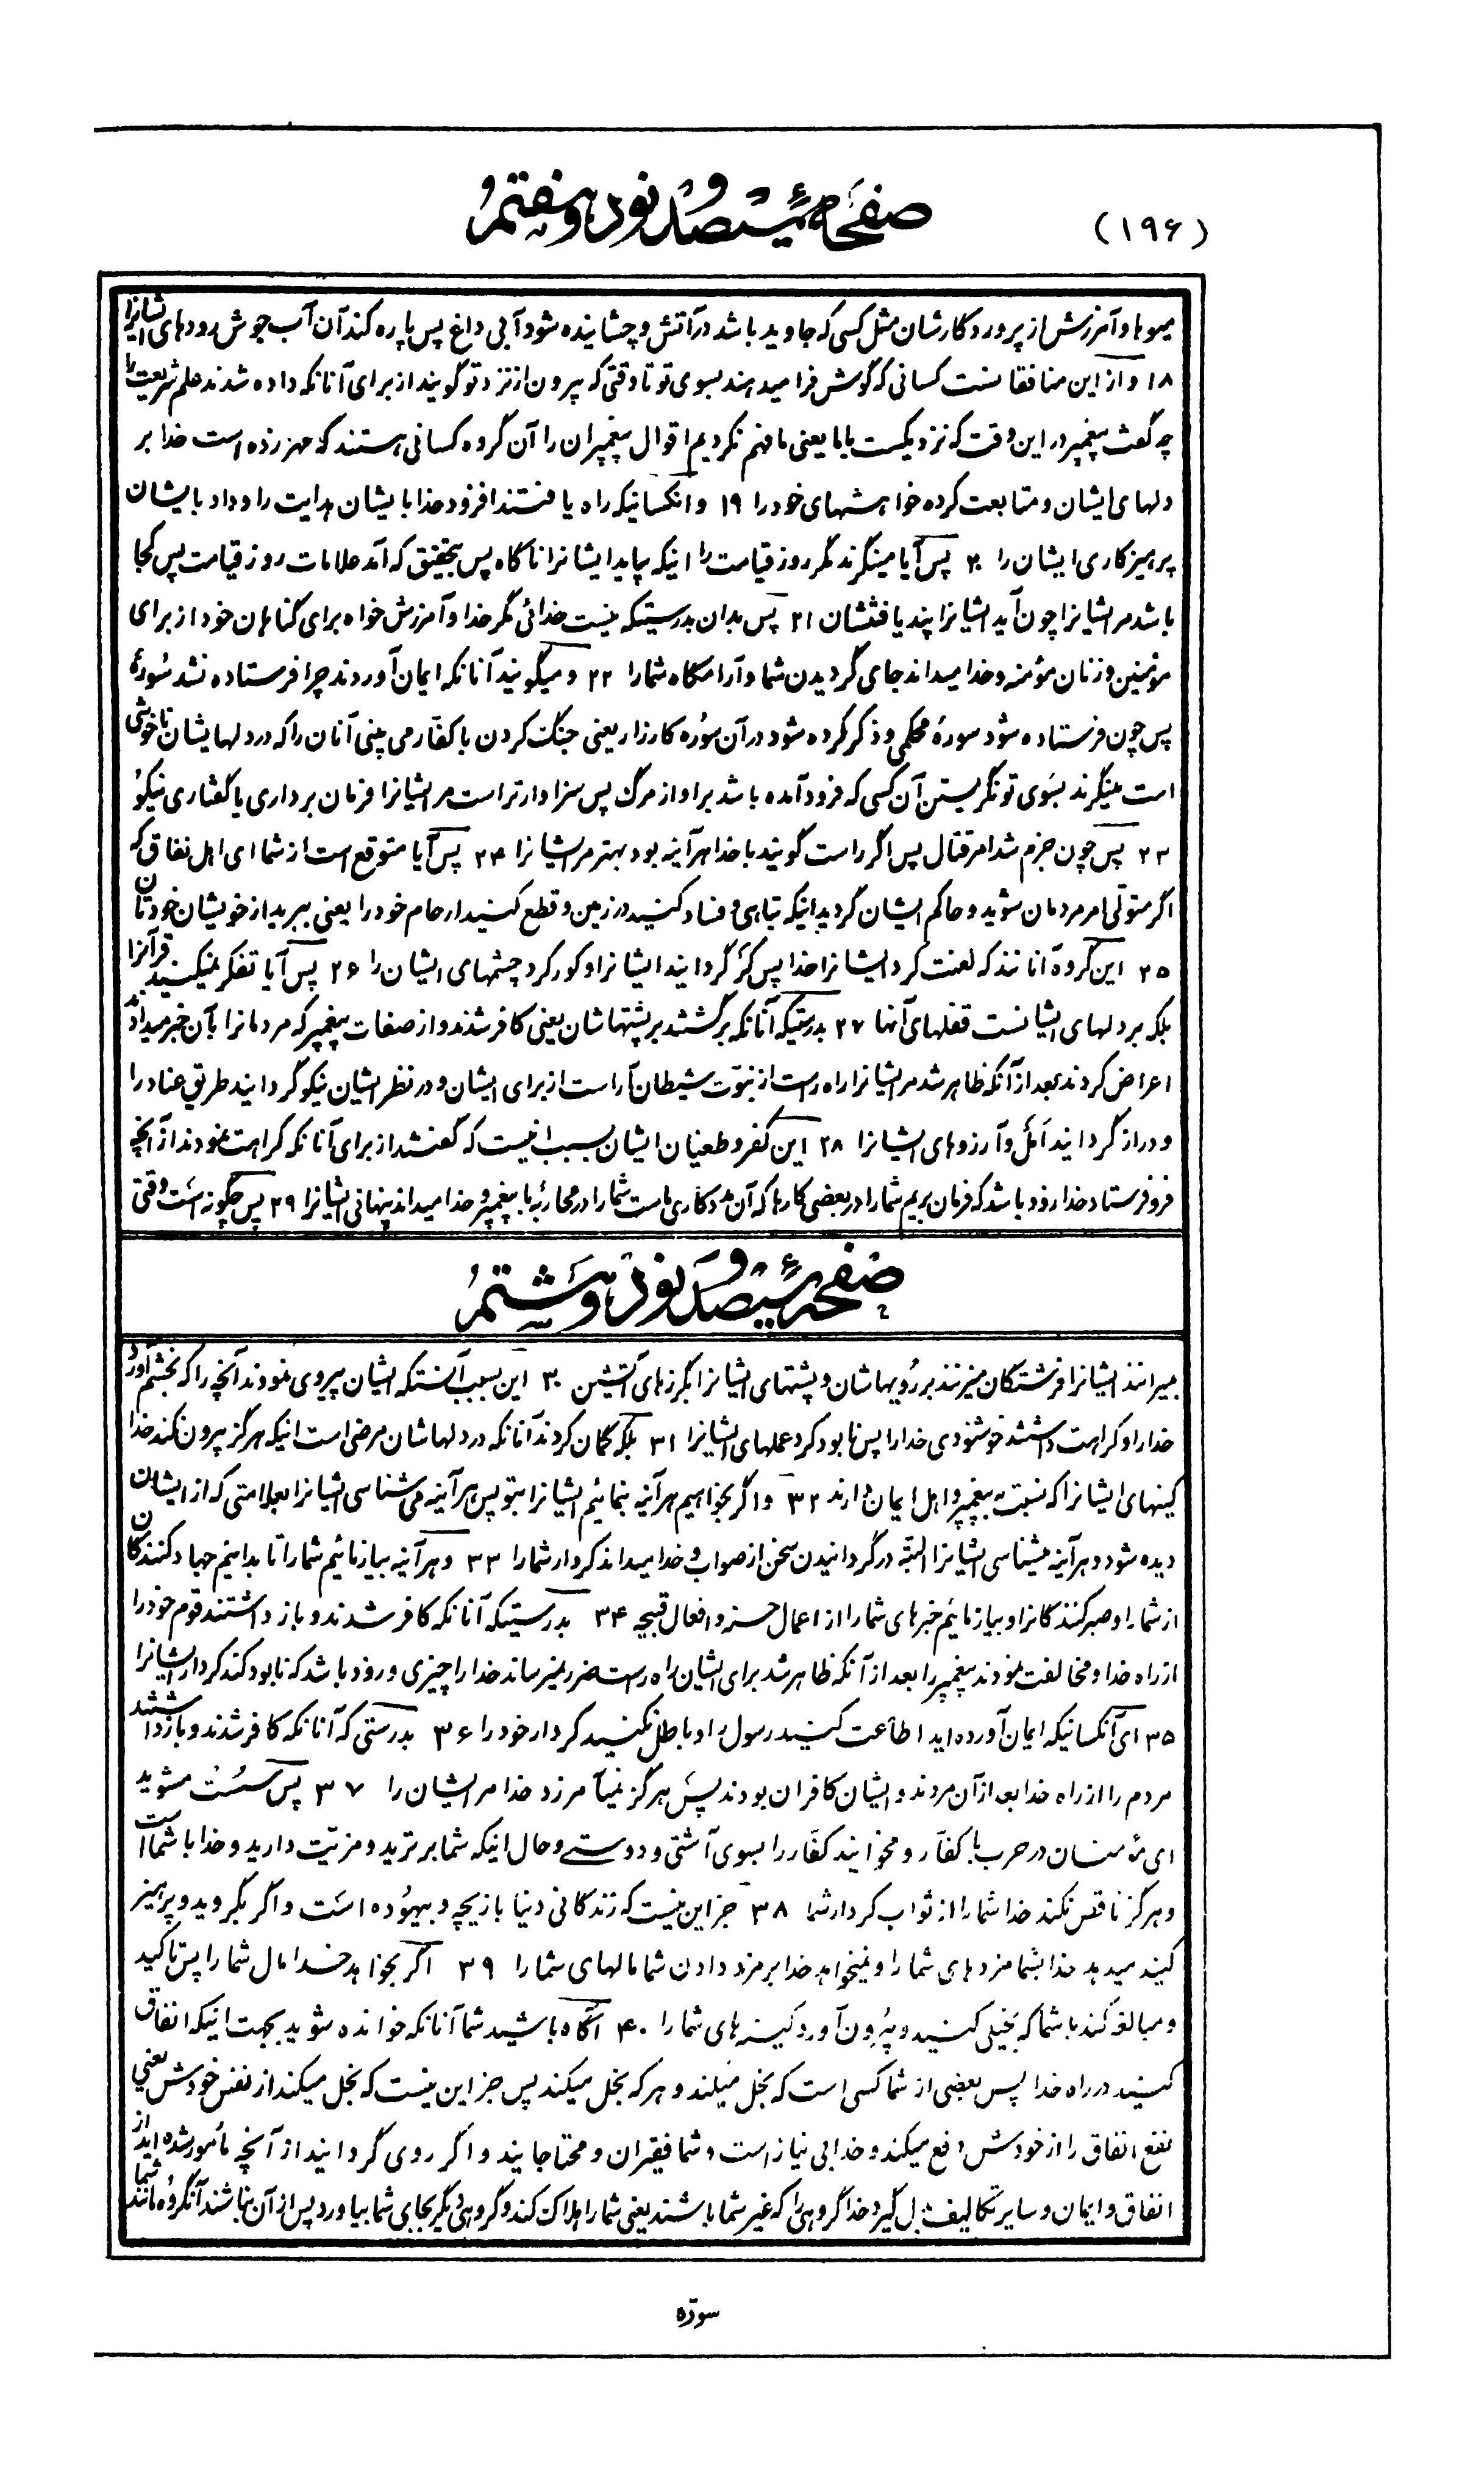 (۱۹۶)
صفحهٔ سیصد و نود و هفتم
میوها و آمرزش از پروردگارشان مثل کسی که جاوید باشد در آتش و چشانیده شود آبی داغ پس پاره کند آن آب جوش رودهای ایشانرا
۱۸ و از این منافقانست کسانی که گوش فرا میدهند بسوی تو تا وقتی که بیرون از نزد تو گویند از برای آنانکه داده شدند علم شریعت را
چه گفت پیغمبر در این وقت که نزدیکست بما یعنی ما فهم نکردیم اقوال پیغمبران را آن گروه کسانی هستند که مهر زده است خدا بر
دلهای ایشان و متابعت کرده خواهشهای خود را ۱۹ و آنکسانیکه راه یافتند افزود خدا بایشان هدایت را و داد بایشان
پرهیزکاری ایشان را ۲۰ پس آیا مینگرند مگر روز قیامت را اینکه بیاید ایشانرا ناگاه پس بتحقیق که آمد علامات روز قیامت پس کجا
باشد مر ایشانرا چون آید ایشانرا پند یافتنشان ۲۱ پس بدان بدرستیکه نیست خدائی مگر خدا و آمرزش خواه برای گناهان خود از برای
مؤمنین و زنان مؤمنه و خدا میداند جای گردیدن شما و آرامگاه شما را ۲۲ و میگویند آنانکه ایمان آوردند چرا فرستاده نشد سُورهٔ
پس چون فرستاده شود سورهٔ محکمی و ذکر کرده شود در آن سُوره کارزار یعنی جنگ کردن با کفّار می بینی آنان را که در دلهایشان ناخوشی
است مینگرند بسوی تو نگریستن آن کسی که فرود آمده باشد بر او از مرگ پس سزاوارتر است مر ایشانرا فرمان برداری یا گفتاری نیکو
۲۳ پس چون جزم شد امر قتال پس اگر راست گویند با خدا هرآینه بود بهتر مر ایشانرا ۲۴ پس آیا متوقع است از شما ای اهل نفاق که
اگر متولّی امر مردمان شوید و حاکم ایشان گردید اینکه تباهی و فساد کنید در زمین و قطع کنید ارحام خود را یعنی ببرید از خویشان خودتان
۲۵ این گروه آنانند که لعنت کرد ایشانرا خدا پس کر گردانید ایشانرا و کور کرد چشمهای ایشان را ۲۶ پس آیا تفکر نمیکنند قرآنرا
بلکه بر دلهای ایشانست قفلهای آنها ۲۷ بدرستیکه آنانکه برگشتند بر پشتهاشان یعنی کافر شدند و از صفات پیغمبر که مردمانرا بآن خبر میدادند
اعراض کردند بعد از آنکه ظاهر شد مر ایشانرا راه راست از نبوّت شیطان آراست از برای ایشان و در نظر ایشان نیکو گردانید طریق عناد را
و دراز گردانید اَمل و آرزوهای ایشانرا ۲۸ این کفر و طغیان ایشان بسبب اینست که گفتند از برای آنانکه کراهت نمودند از آنچه
فرو فرستاد خدا زود باشد که فرمان بریم شما را در بعضی کارها که آن مددکاری ماست شما را در محاربهٔ با پیغمبر و خدا میداند پنهانی ایشانرا ۲۹ پس چگونه است وقتی
صفحهٔ سیصد و نود و هشتم
میرانند ایشانرا فرشتگان میزنند بر رُویهاشان و پشتهای ایشانرا بگرزهای آتشین ۳۰ این بسبب آنستکه ایشان پیروی نمودند آنچه را که بخشم آورد
خدا را و کراهت داشتند خوشنودی خدا را پس نابود کرد عملهای ایشانرا ۳۱ بلکه گمان کردند آنانکه در دلهاشان مرضی است اینکه هرگز بیرون نکند خدا
کینهای ایشانرا که نسبت به پیغمبر و اهل ایمان دارند ۳۲ و اگر بخواهیم هرآینه بنمائیم ایشانرا بتو پس هرآینه می شناسی ایشانرا بعلامتی که از ایشان
دیده شود و هرآینه میشناسی ایشانرا البتّه در گردانیدن سخن از صواب و خدا میداند کردار شما را ۳۳ و هرآینه بیازمائیم شما را تا بدانیم جهاد کنندگان
از شما را و صبر کنندگانرا و بیازمائیم خبرهای شما را از اعمال حسنه و افعال قبیحه ۳۴ بدرستیکه آنانکه کافر شدند و باز داشتند قوم خود را
از راه خدا و مخالفت نمودند پیغمبر را بعد از آنکه ظاهر شد برای ایشان راه راست ضرر نمیرساند خدا را چیزی و زود باشد که نابود کند کردار ایشانرا
۳۵ ای آنکسانیکه ایمان آورده اید اطاعت کنید رسول را و باطل نکنید کردار خود را ۳۶ بدرستی که آنانکه کافر شدند و باز داشتند
مردم را از راه خدا بعد از آن مردند و ایشان کافران بودند پس هرگز نمیآمرزد خدا مر ایشان را ۳۷ پس سُست مشوید
ای مؤمنان در حرب با کفّار و مخوانید کفّار را بسوی آشتی و دوستی و حال اینکه شما برترید و مزیّت دارید و خدا با شما است
و هرگز ناقص نکند خدا شما را از ثواب کردار شما ۳۸ جز این نیست که زندگانی دنیا بازیچه و بیهوُده است و اگر بگروید و پرهیز
کنید میدهد خدا بشما مزدهای شما را و نمیخواهد خدا بر مزد دادن شما مالهای شما را ۳۹ اگر بخواهد خدا مال شما را پس تاکید
و مبالغه کند با شما که بخیلی کنید و بیرون آورد کینه های شما را ۴۰ آگاه باشید شما آنانکه خوانده شوید بجهت اینکه انفاق
کنید در راه خدا پس بعضی از شما کسی است که بخل میکند و هر که بخل میکند پس جز این نیست که بخل میکند از نفس خودش یعنی
نفع انفاق را از خودش دفع میکند و خدا بی نیاز است و شما فقیران و محتاجانید و اگر روی گردانید از آنچه مأمور شده اید از
انفاق و ایمان و سایر تکالیف بدل گیرد خدا گروهی را که غیر شما باشند یعنی شما را هلاک کند و گروهی دیگر بجای شما بیاورد پس از آن نباشند آنگروه مانند شما
سورّه